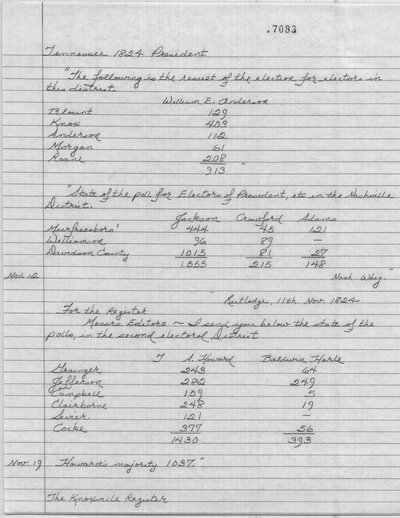 17083
Tennessee 1824 President
"The following is the result of the election for electors in
this district.
William E. Anderson
Blount 129
Knox 403
Anderson 112
Morgan 61
Roane 208
913 "
"State of the poll for Electors of President, etc in the Nashville
District.
Jackson Crawford Adams
Murfreesboro' 444 45 121
Williamson 96 89 —
Davidson County 1015 81 27
1555 215 148
Nov. 12 Nash Whig."
"Rutledge, 11th Nov. 1824
For the Register
Messrs Editors ~ I send you below the state of the
polls, in the second electoral District
J S. Howard Baldwin Harle
Grainger 243 64
Jefferson 282 249
Campbell 159 5
Claiborne 248 19
Sevier 121 —
Cocke 377 56
1430 393
Nov. 19 Howard's majority 1037."
The Knoxville Register